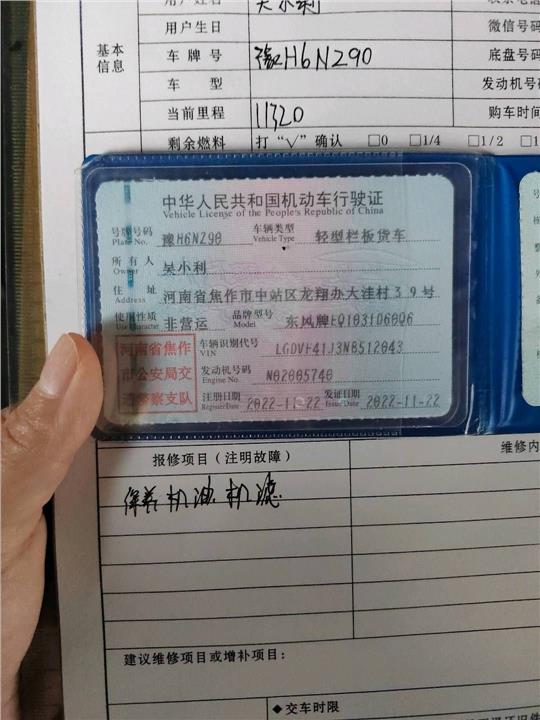 用户姓名 吴小利
用户生日 微信号码
基本信息
车牌号 豫H6N290 底盘号码
车 型 发动机号码
当前里程 11320 购车时间
剩余燃料 打“√”确认 □0 □1/4 □1/2
中华人民共和国机动车行驶证
Vehicle License of the People's Republic of China
号牌号码 Plate No. 豫H6N290 车辆类型 Vehicle Type 轻型栏板货车
所有人 Owner 吴小利
住 址 Address 河南省焦作市中站区龙翔办大洼村39号
使用性质 Use Character 非营运 品牌型号 Model 东风牌EQ1031D60Q6
河南省焦作
市公安局交
通警察支队
车辆识别代号 VIN LGDVH41J3NB512043
发动机号码 Engine No. N02005740
注册日期 Register Date 2022-11-22 发证日期 Issue Date 2022-11-22
报修项目（注明故障） 维修内
保养 机油 机滤
建议维修项目或增补项目：
◆交车时限